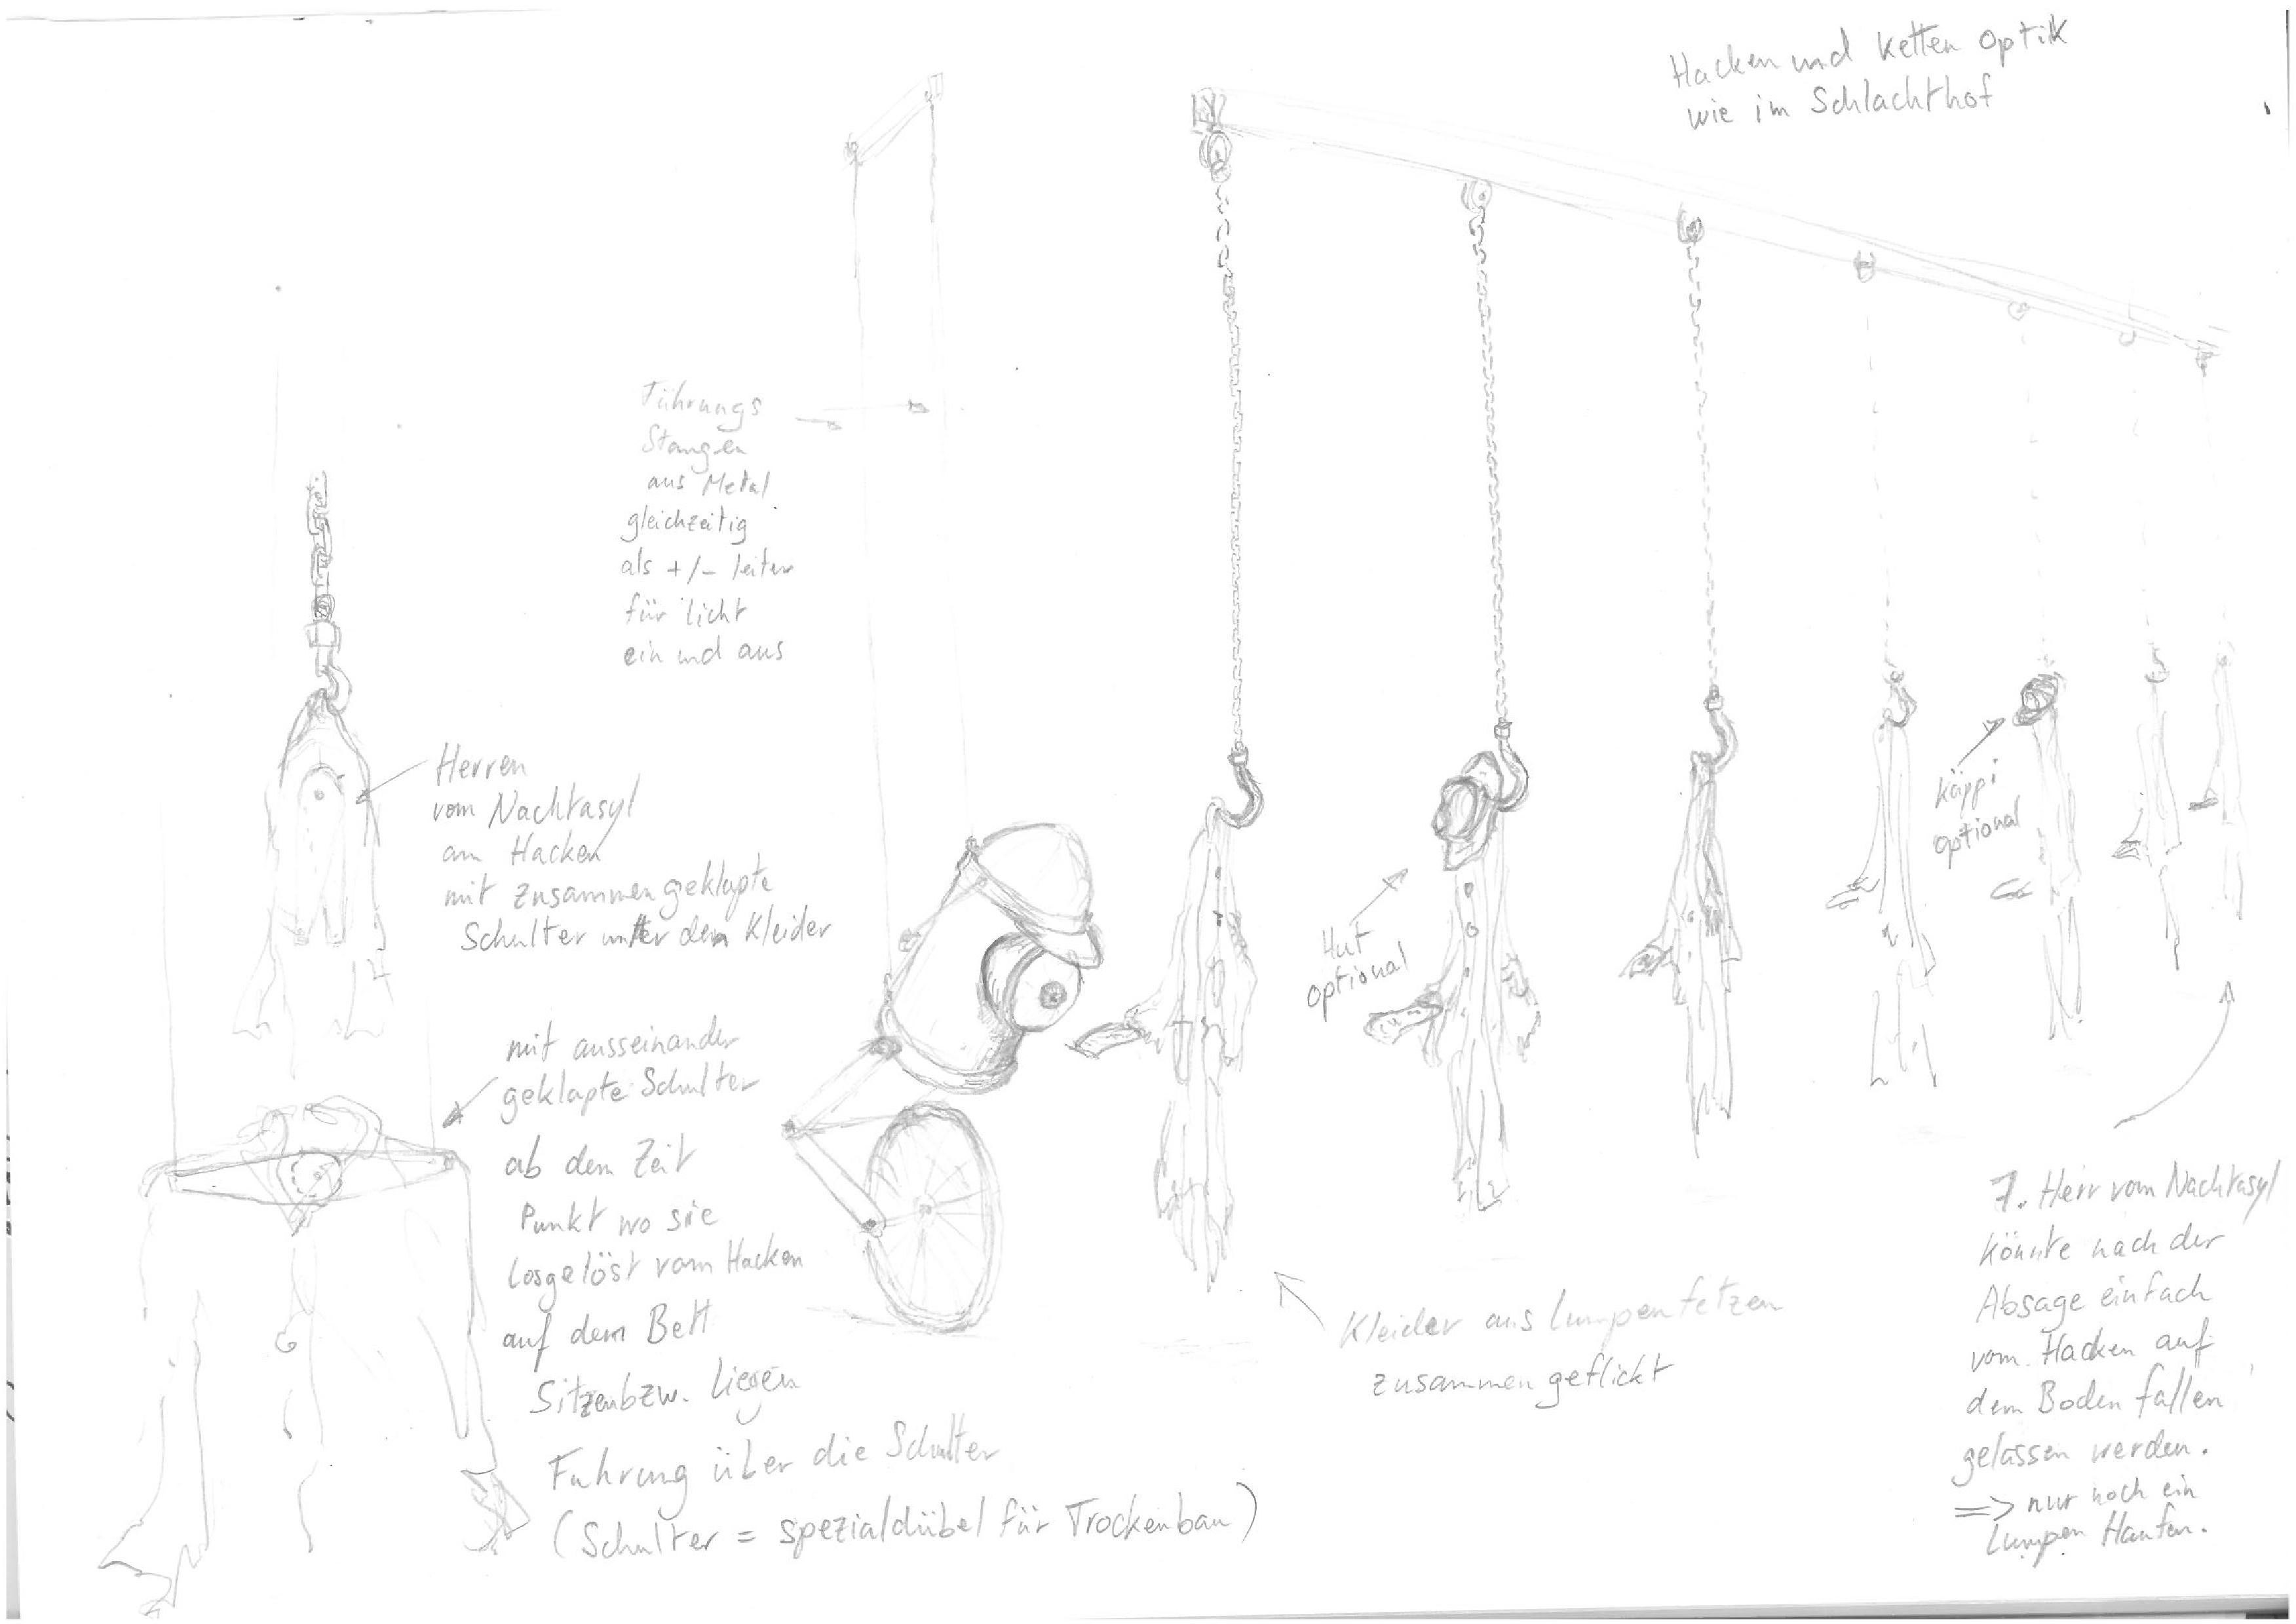 Hacken und Ketten Optik
wie im Schlachthof
Führungs
Stangen
aus Metal
gleichzeitig
als +/- leiter
für licht
ein und aus
Herren
vom Nachtasyl
am Hacken
mit zusammengeklapte
Schulter unter den Kleider
mit ausseinander
geklapte Schulter
ab dem Zeit
Punkt wo sie
losgelöst vom Hacken
auf dem Bett
Sitzen bzw. liegen
Führung über die Schulter
(Schulter = spezialdübel für Trockenbau)
Hut
optional
Käppi
optional
Kleider aus Lumpenfetzen
zusammen geflickt
7. Herr vom Nachtasyl
könnte nach der
Absage einfach
vom Hacken auf
dem Boden fallen
gelassen werden.
=> nur noch ein
Lumpen Haufen.